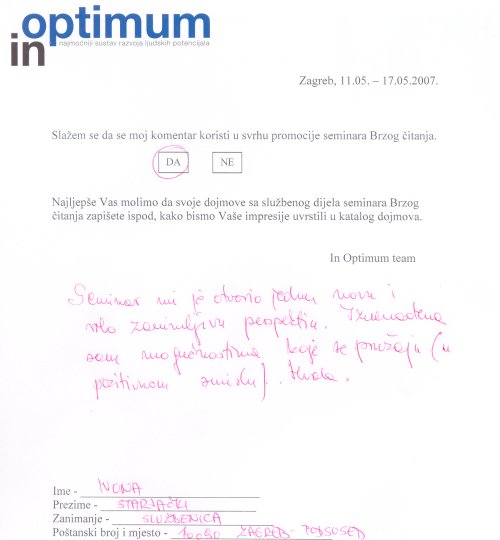 in optimum
najmoćniji sustav razvoja ljudskih potencijala
Zagreb, 11.05. – 17.05.2007.
Slažem se da se moj komentar koristi u svrhu promocije seminara Brzog čitanja.
DA NE
Najljepše Vas molimo da svoje dojmove sa službenog dijela seminara Brzog
čitanja zapišete ispod, kako bismo Vaše impresije uvrstili u katalog dojmova.
In Optimum team
Seminar mi je otvorio jednu novu i
vrlo zanimljivu perspektivu. Iznenađena
sam mogućnostima koje se pružaju (u
pozitivnom smislu). Hvala.
Ime - IVONA
Prezime - STARJAČKI
Zanimanje - SLUŽBENICA
Poštanski broj i mjesto - 10090 ZAGREB - PODSUSED